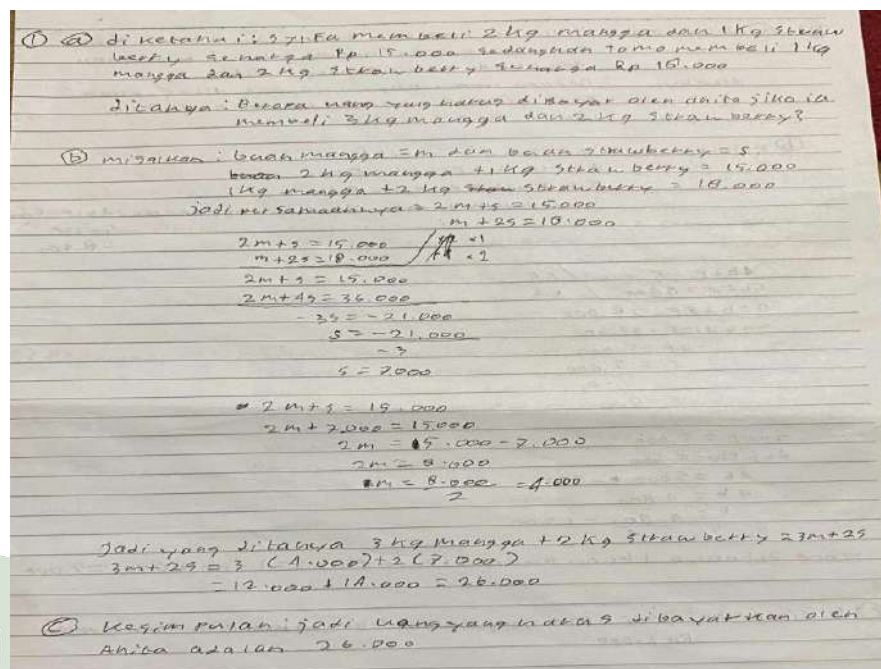 ① ⓐ diketahui : syifa membeli 2 kg mangga dan 1 kg straw
berry seharga Rp. 15.000 sedangkan tomo membeli 1 kg
mangga dan 2 kg strawberry seharga Rp 18.000
ditanya : Berapa uang yang harus dibayar oleh anita jika ia
membeli 3 kg mangga dan 2 kg strawberry?
ⓑ misalkan : buah mangga = m dan buah strawberry = s
2 kg mangga + 1 kg strawberry = 15.000
1 kg mangga + 2 kg strawberry = 18.000
jadi persamaannya = 2m+s = 15.000
m + 2s = 18.000
2m+s = 15.000 | x1
m+2s = 18.000 | x2
2m+s = 15.000
2m+4s = 36.000
-3s = -21.000
s = -21.000
-3
s = 7.000
2m+s = 15.000
2m + 7.000 = 15.000
2m = 15.000 - 7.000
2m = 8.000
m = 8.000 = 4.000
2
Jadi yang ditanya 3 kg mangga + 2 kg strawberry = 3m+2s
3m+2s = 3 (4.000)+2(7.000)
= 12.000 + 14.000 = 26.000
ⓒ Kesimpulan : jadi uang yang harus dibayarkan oleh
Anita adalah 26.000